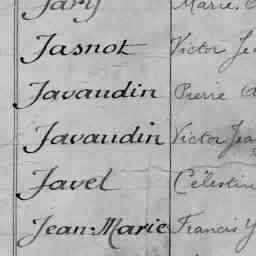 Jary Marie,
Jasnot Victor Jea
Javaudin Pierre
Javaudin Victor Jea
Javel Célestin
Jean-Marie Francis